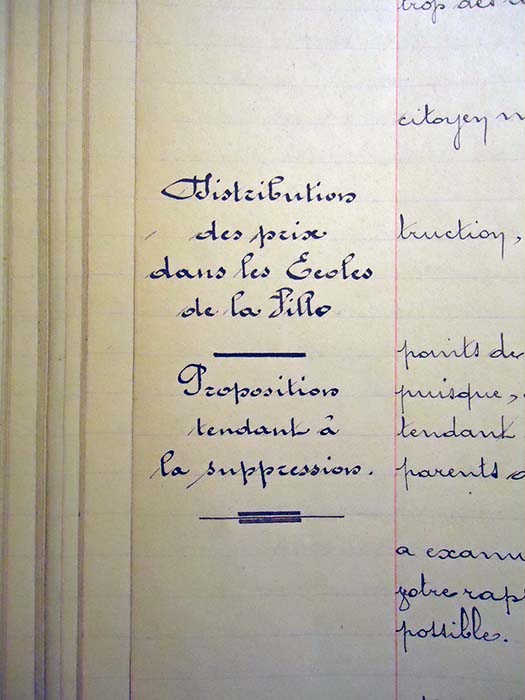 Distribution
des prix
dans les Ecoles
de la Ville
Proposition
tendant à
la suppression.
trop des
citoyen
truction,
points de
puisque,
tendant
parents
a exam
votre rap
possible.